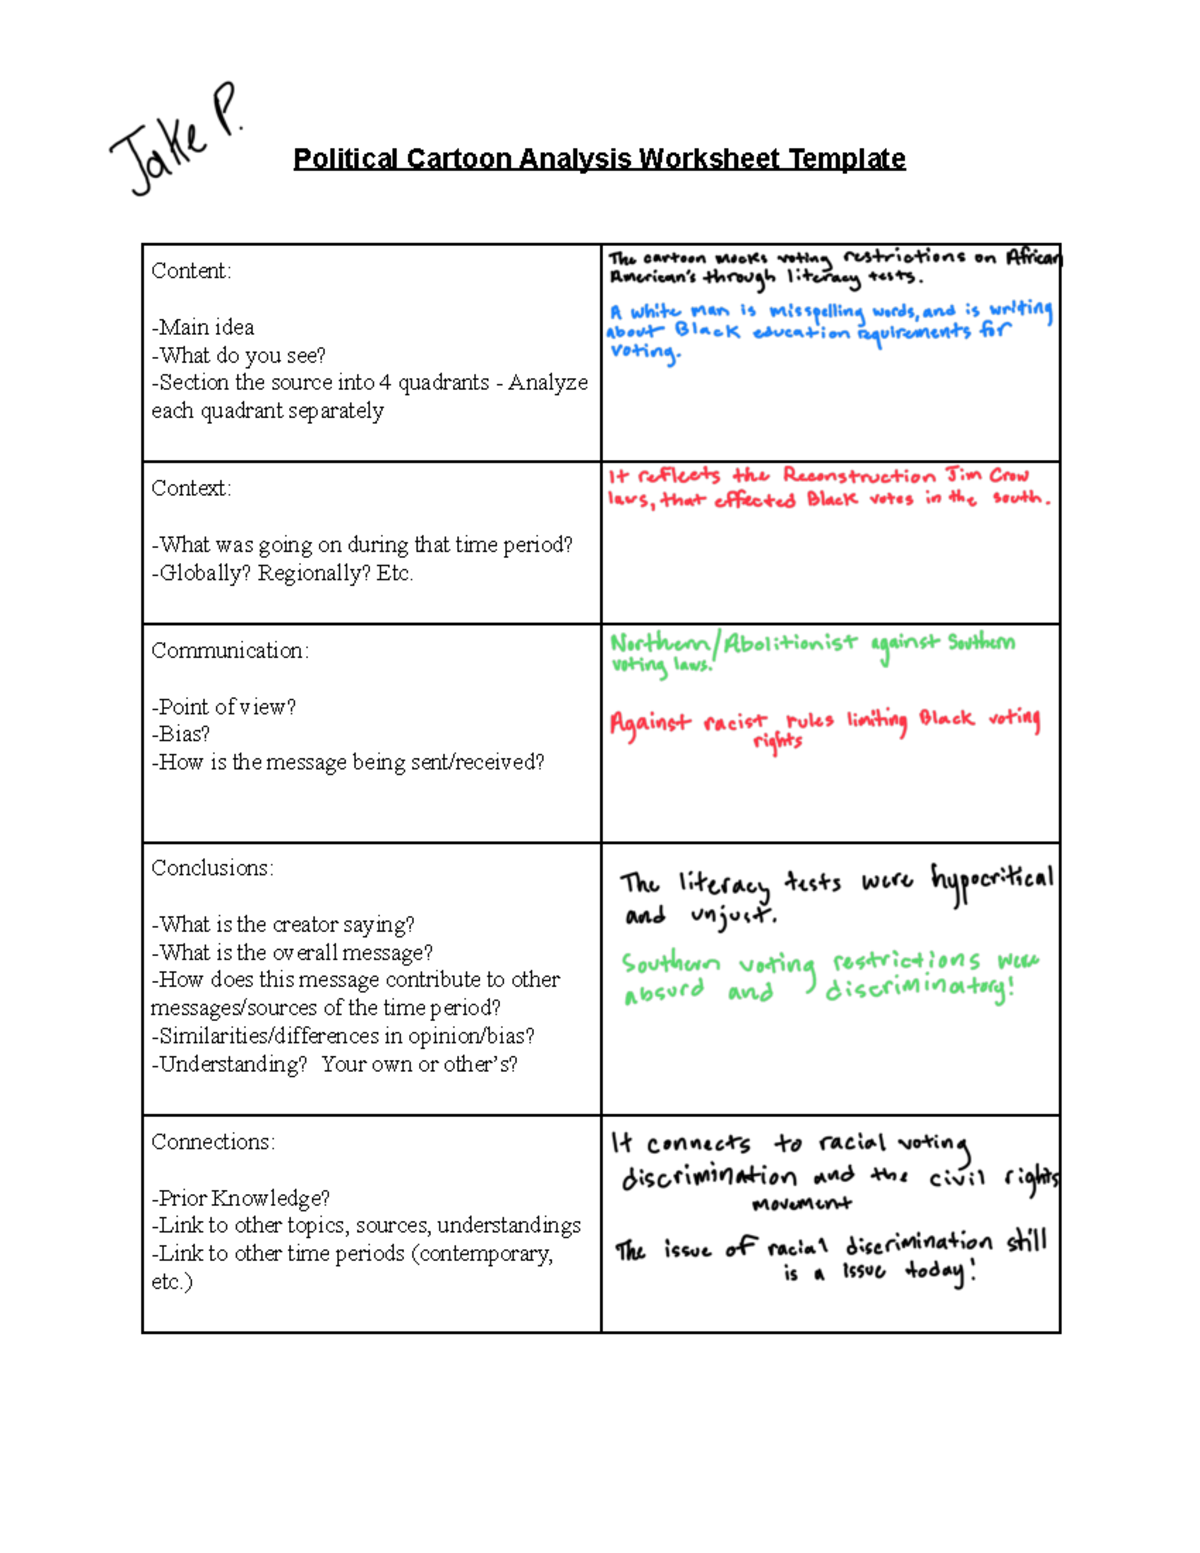 Jake P.
Political Cartoon Analysis Worksheet Template
Content:
-Main idea
-What do you see?
-Section the source into 4 quadrants - Analyze
each quadrant separately
The cartoon mocks voting restrictions on African
American's through literacy tests.
A white man is misspelling words, and is writing
about Black education requirements for
voting.
Context:
-What was going on during that time period?
-Globally? Regionally? Etc.
It reflects the Reconstruction Jim Crow
laws, that effected Black votes in the south.
Communication:
-Point of view?
-Bias?
-How is the message being sent/received?
Northern/Abolitionist against Southern
voting laws.
Against racist rules limiting Black voting
rights
Conclusions:
-What is the creator saying?
-What is the overall message?
-How does this message contribute to other
messages/sources of the time period?
-Similarities/differences in opinion/bias?
-Understanding?  Your own or other's?
The literacy tests were hypocritical
and unjust.
Southern voting restrictions were
absurd and discriminatory!
Connections:
-Prior Knowledge?
-Link to other topics, sources, understandings
-Link to other time periods (contemporary,
etc.)
It connects to racial voting
discrimination and the civil rights
movement
The issue of racial discrimination still
is a issue today!